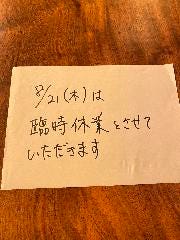 8/21(木)は
臨時休業とさせて
いただきます